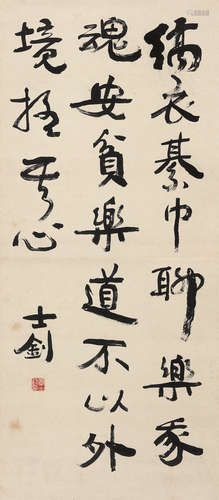 縞衣綦巾聊樂我
魂安貧樂道不以外
境其心
士釗